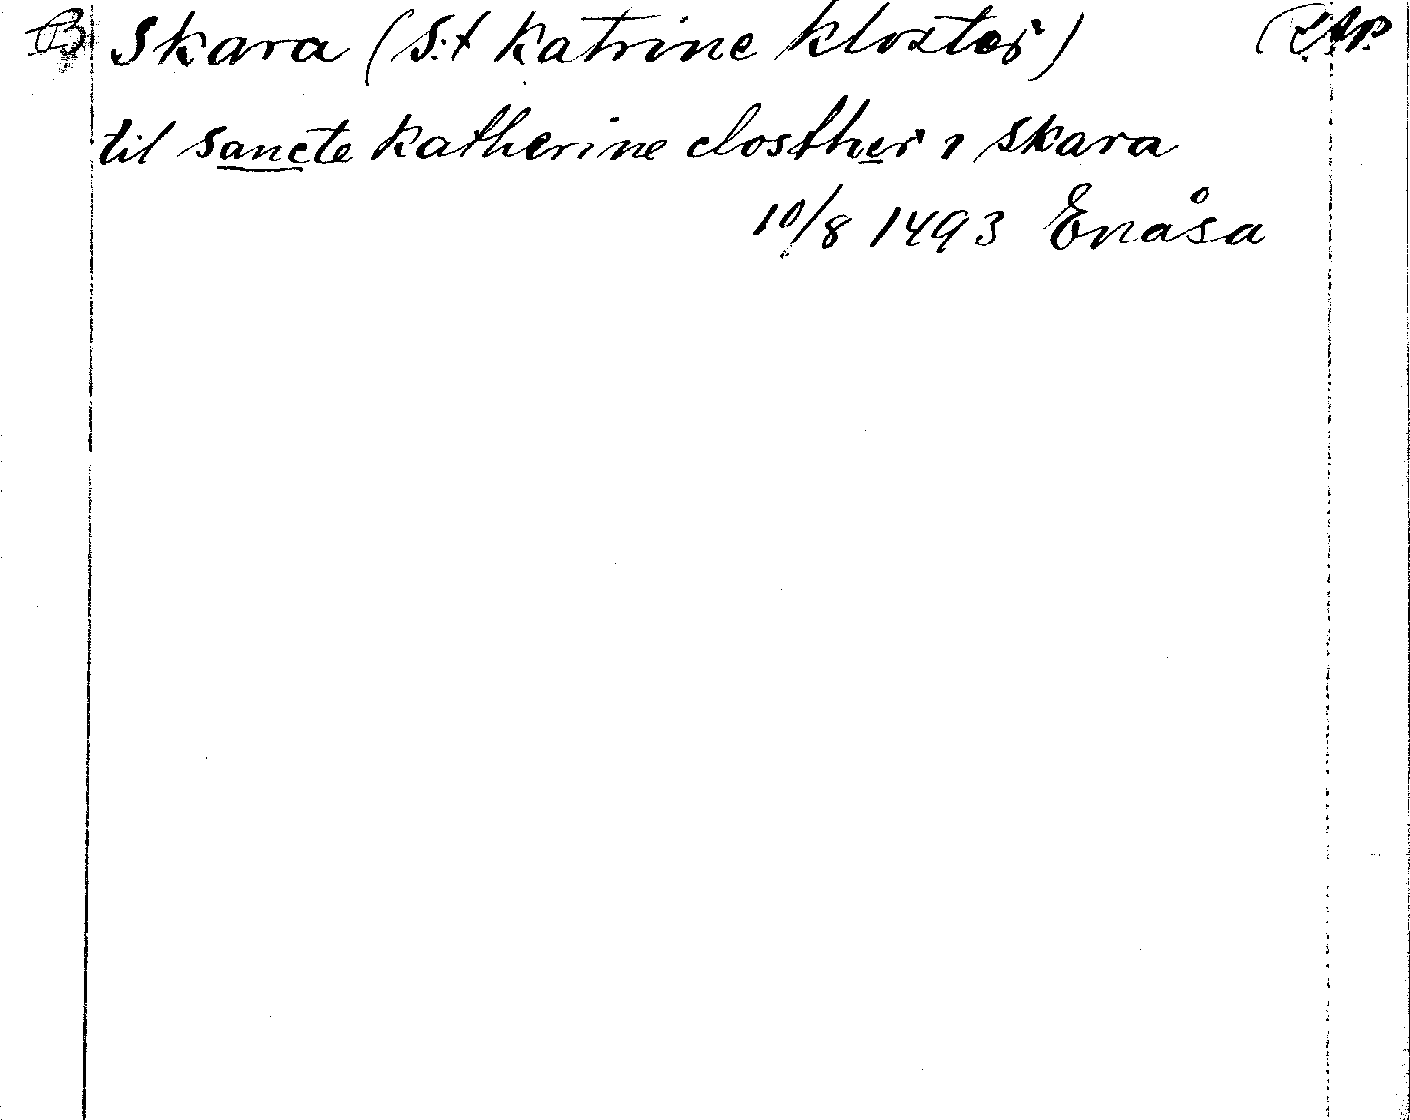 B Skara (S:t Katrine kloster)
til sancte Katherine closther i skara
10/8 1493 Enåsa